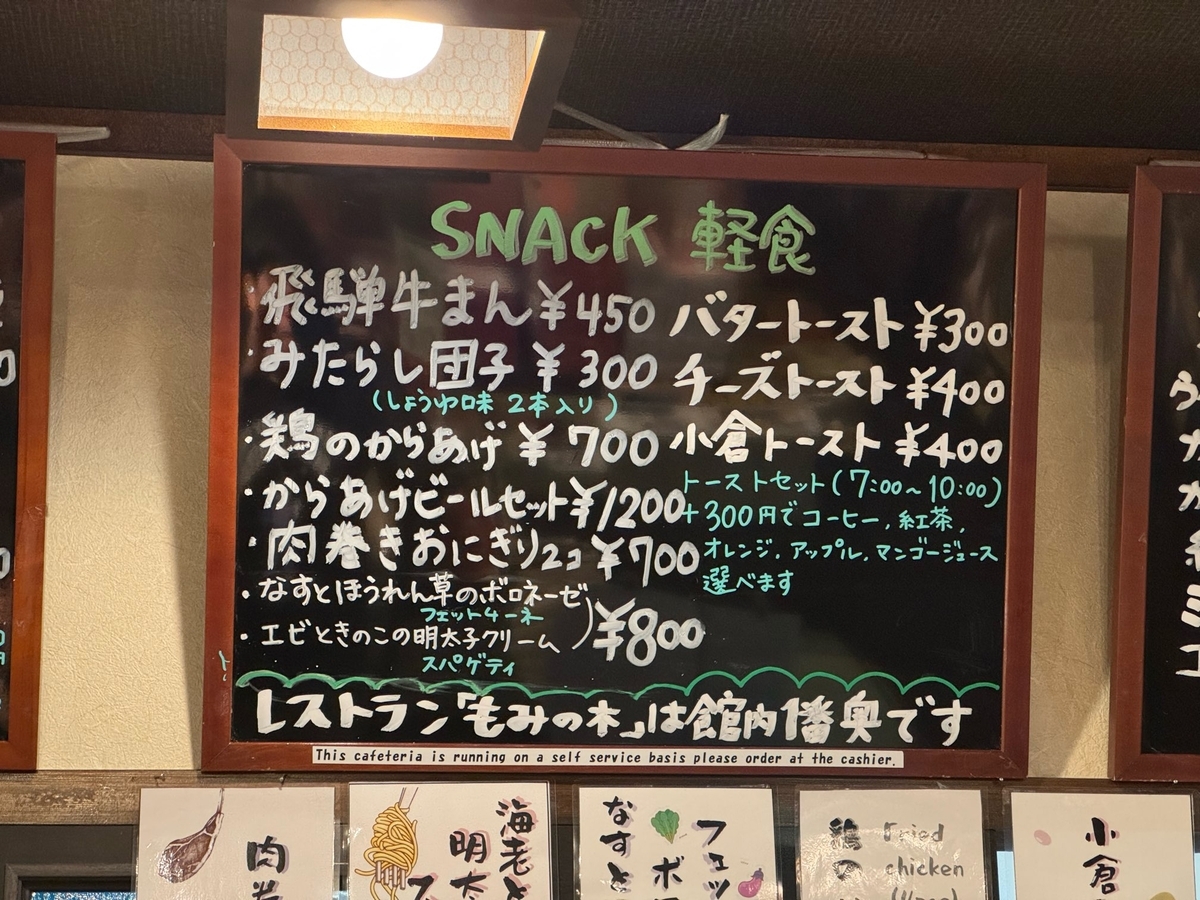 SNACK 軽食
飛騨牛まん ¥450
・みたらし団子 ¥300
(しょうゆ味 2本入り)
・鶏のからあげ ¥700
・からあげビールセット ¥1200
・肉巻きおにぎり2コ ¥700
・なすとほうれん草のボロネーゼ
フェットチーネ
・エビときのこの明太子クリーム
スパゲティ
) ¥800
バタートースト ¥300
チーズトースト ¥400
小倉トースト ¥400
トーストセット(7:00~10:00)
+300円でコーヒー, 紅茶,
オレンジ, アップル, マンゴージュース
選べます
レストラン「もみの木」は館内1番奥です
This cafeteria is running on a self service basis please order at the cashier.
肉
海老と
明太
なすと
ボ
フェッ
鶏の
Fried
chicken
小倉